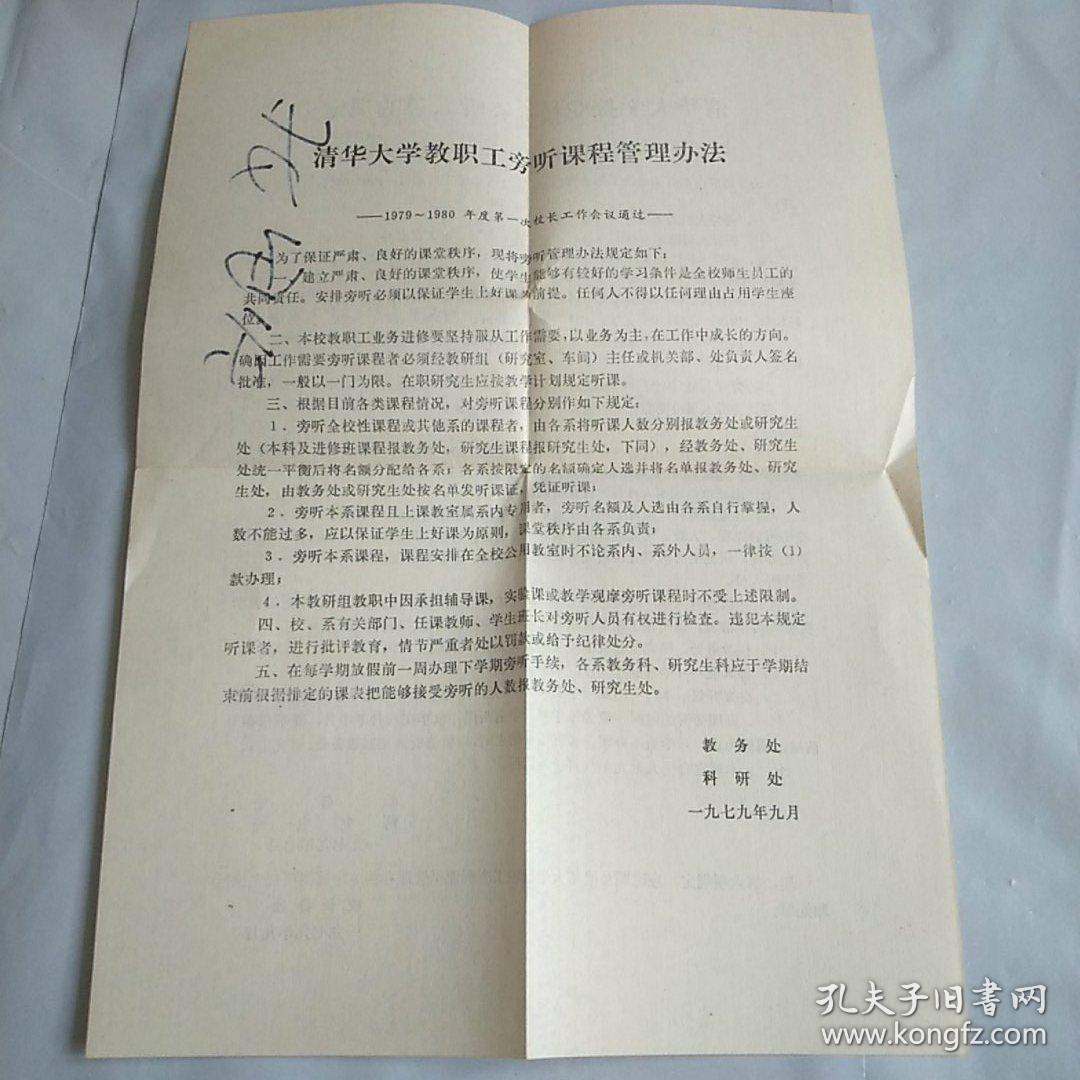 清华大学教职工旁听课程管理办法
——1979～1980 年度第一次校长工作会议通过——
为了保证严肃、良好的课堂秩序，现将旁听管理办法规定如下：
一、建立严肃、良好的课堂秩序，使学生能够有较好的学习条件是全校师生员工的
共同责任。安排旁听必须以保证学生上好课为前提。任何人不得以任何理由占用学生座
位。
二、本校教职工业务进修要坚持服从工作需要，以业务为主，在工作中成长的方向。
确因工作需要旁听课程者必须经教研组（研究室、车间）主任或机关部、处负责人签名
批准，一般以一门为限。在职研究生应按教学计划规定听课。
三、根据目前各类课程情况，对旁听课程分别作如下规定：
1．旁听全校性课程或其他系的课程者，由各系将听课人数分别报教务处或研究生
处（本科及进修班课程报教务处，研究生课程报研究生处，下同），经教务处、研究生
处统一平衡后将名额分配给各系；各系按限定的名额确定人选并将名单报教务处、研究
生处，由教务处或研究生处按名单发听课证，凭证听课；
2．旁听本系课程且上课教室属系内专用者，旁听名额及人选由各系自行掌握，人
数不能过多，应以保证学生上好课为原则，课堂秩序由各系负责；
3．旁听本系课程，课程安排在全校公用教室时不论系内、系外人员，一律按（1）
款办理；
4．本教研组教职中因承担辅导课，实验课或教学观摩旁听课程时不受上述限制。
四、校、系有关部门、任课教师、学生班长对旁听人员有权进行检查。违犯本规定
听课者，进行批评教育，情节严重者处以罚款或给予纪律处分。
五、在每学期放假前一周办理下学期旁听手续，各系教务科、研究生科应于学期结
束前根据排定的课表把能够接受旁听的人数报教务处、研究生处。
教务处
科研处
一九七九年九月
孔夫子旧書网
www.kongfz.com